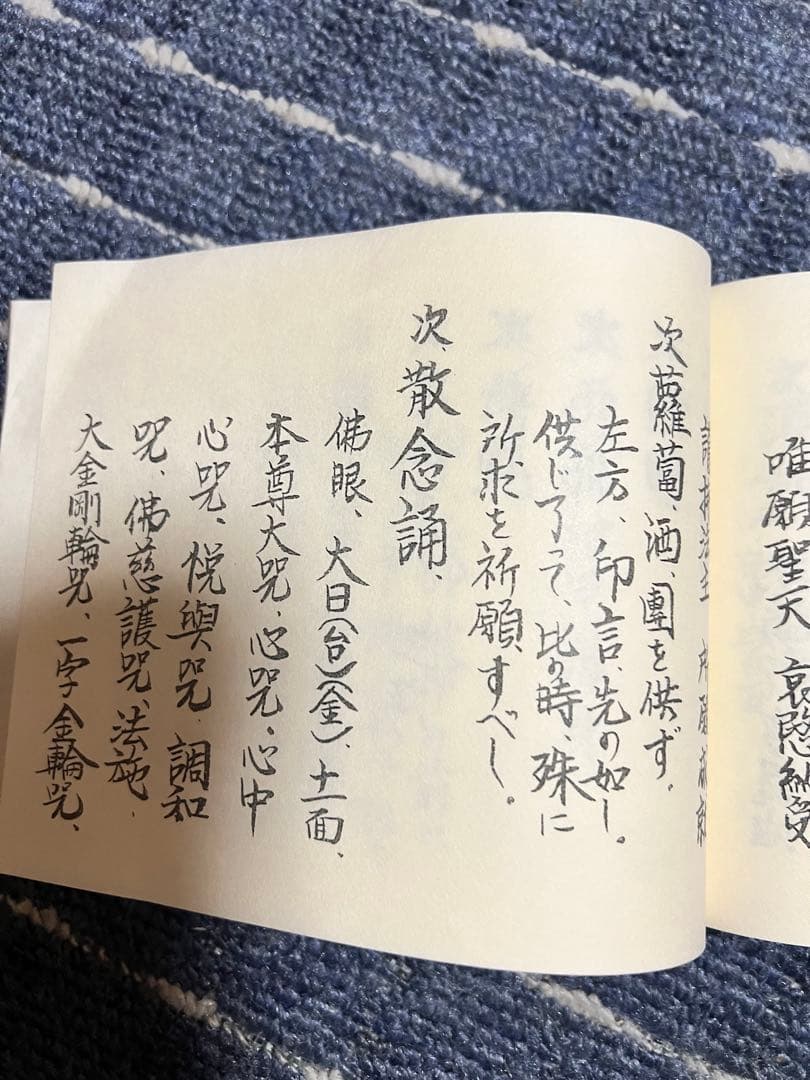 唯願聖天 哀愍納受
護持法主 所願成就
次蘿蔔、酒、團を供ず。
左方、印言、先の如し。
供じ了って、比の時、殊に
所求を祈願すべし。
次、散念誦、
佛眼、大日(台)(金)、十一面、
本尊大咒、心咒、心中
心咒、悦與咒、調和
咒、佛慈護咒、法施、
大金剛輪咒、一字金輪咒、